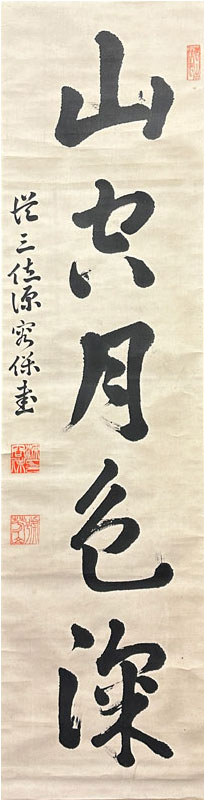 山空月色深
従三位源容保書